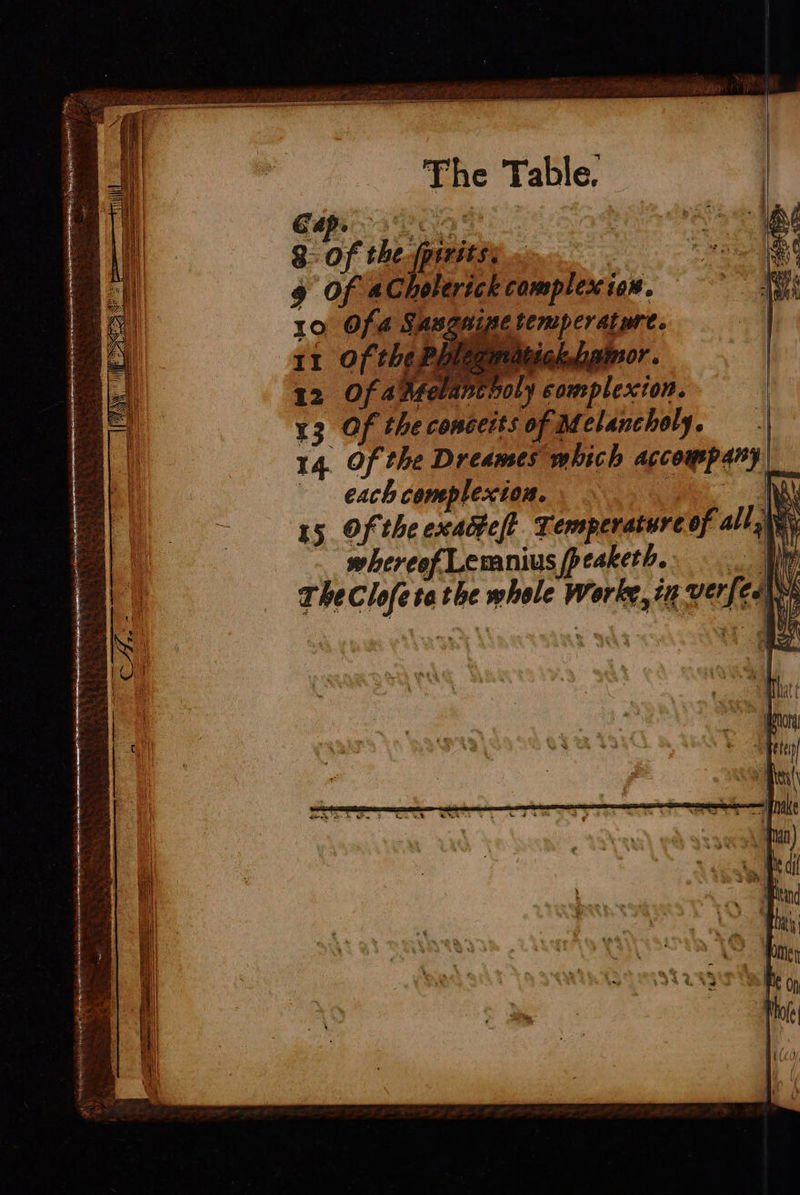 The Table.
Cap.
8 Of the ſpirits.
9 Of a Cholerick complexion.
10 Of a Sanguine temperature.
11 Of the Phlegmatick humor.
12 Of a Melancholy complexion.
13 Of the conceits of Melancholy.
14 Of the Dreames which accompany
each complexion.
15 Of the exacteſt Temperature of all,
whereof Lemnius ſpeaketh.
The Cloſe to the whole Worke, in verſe